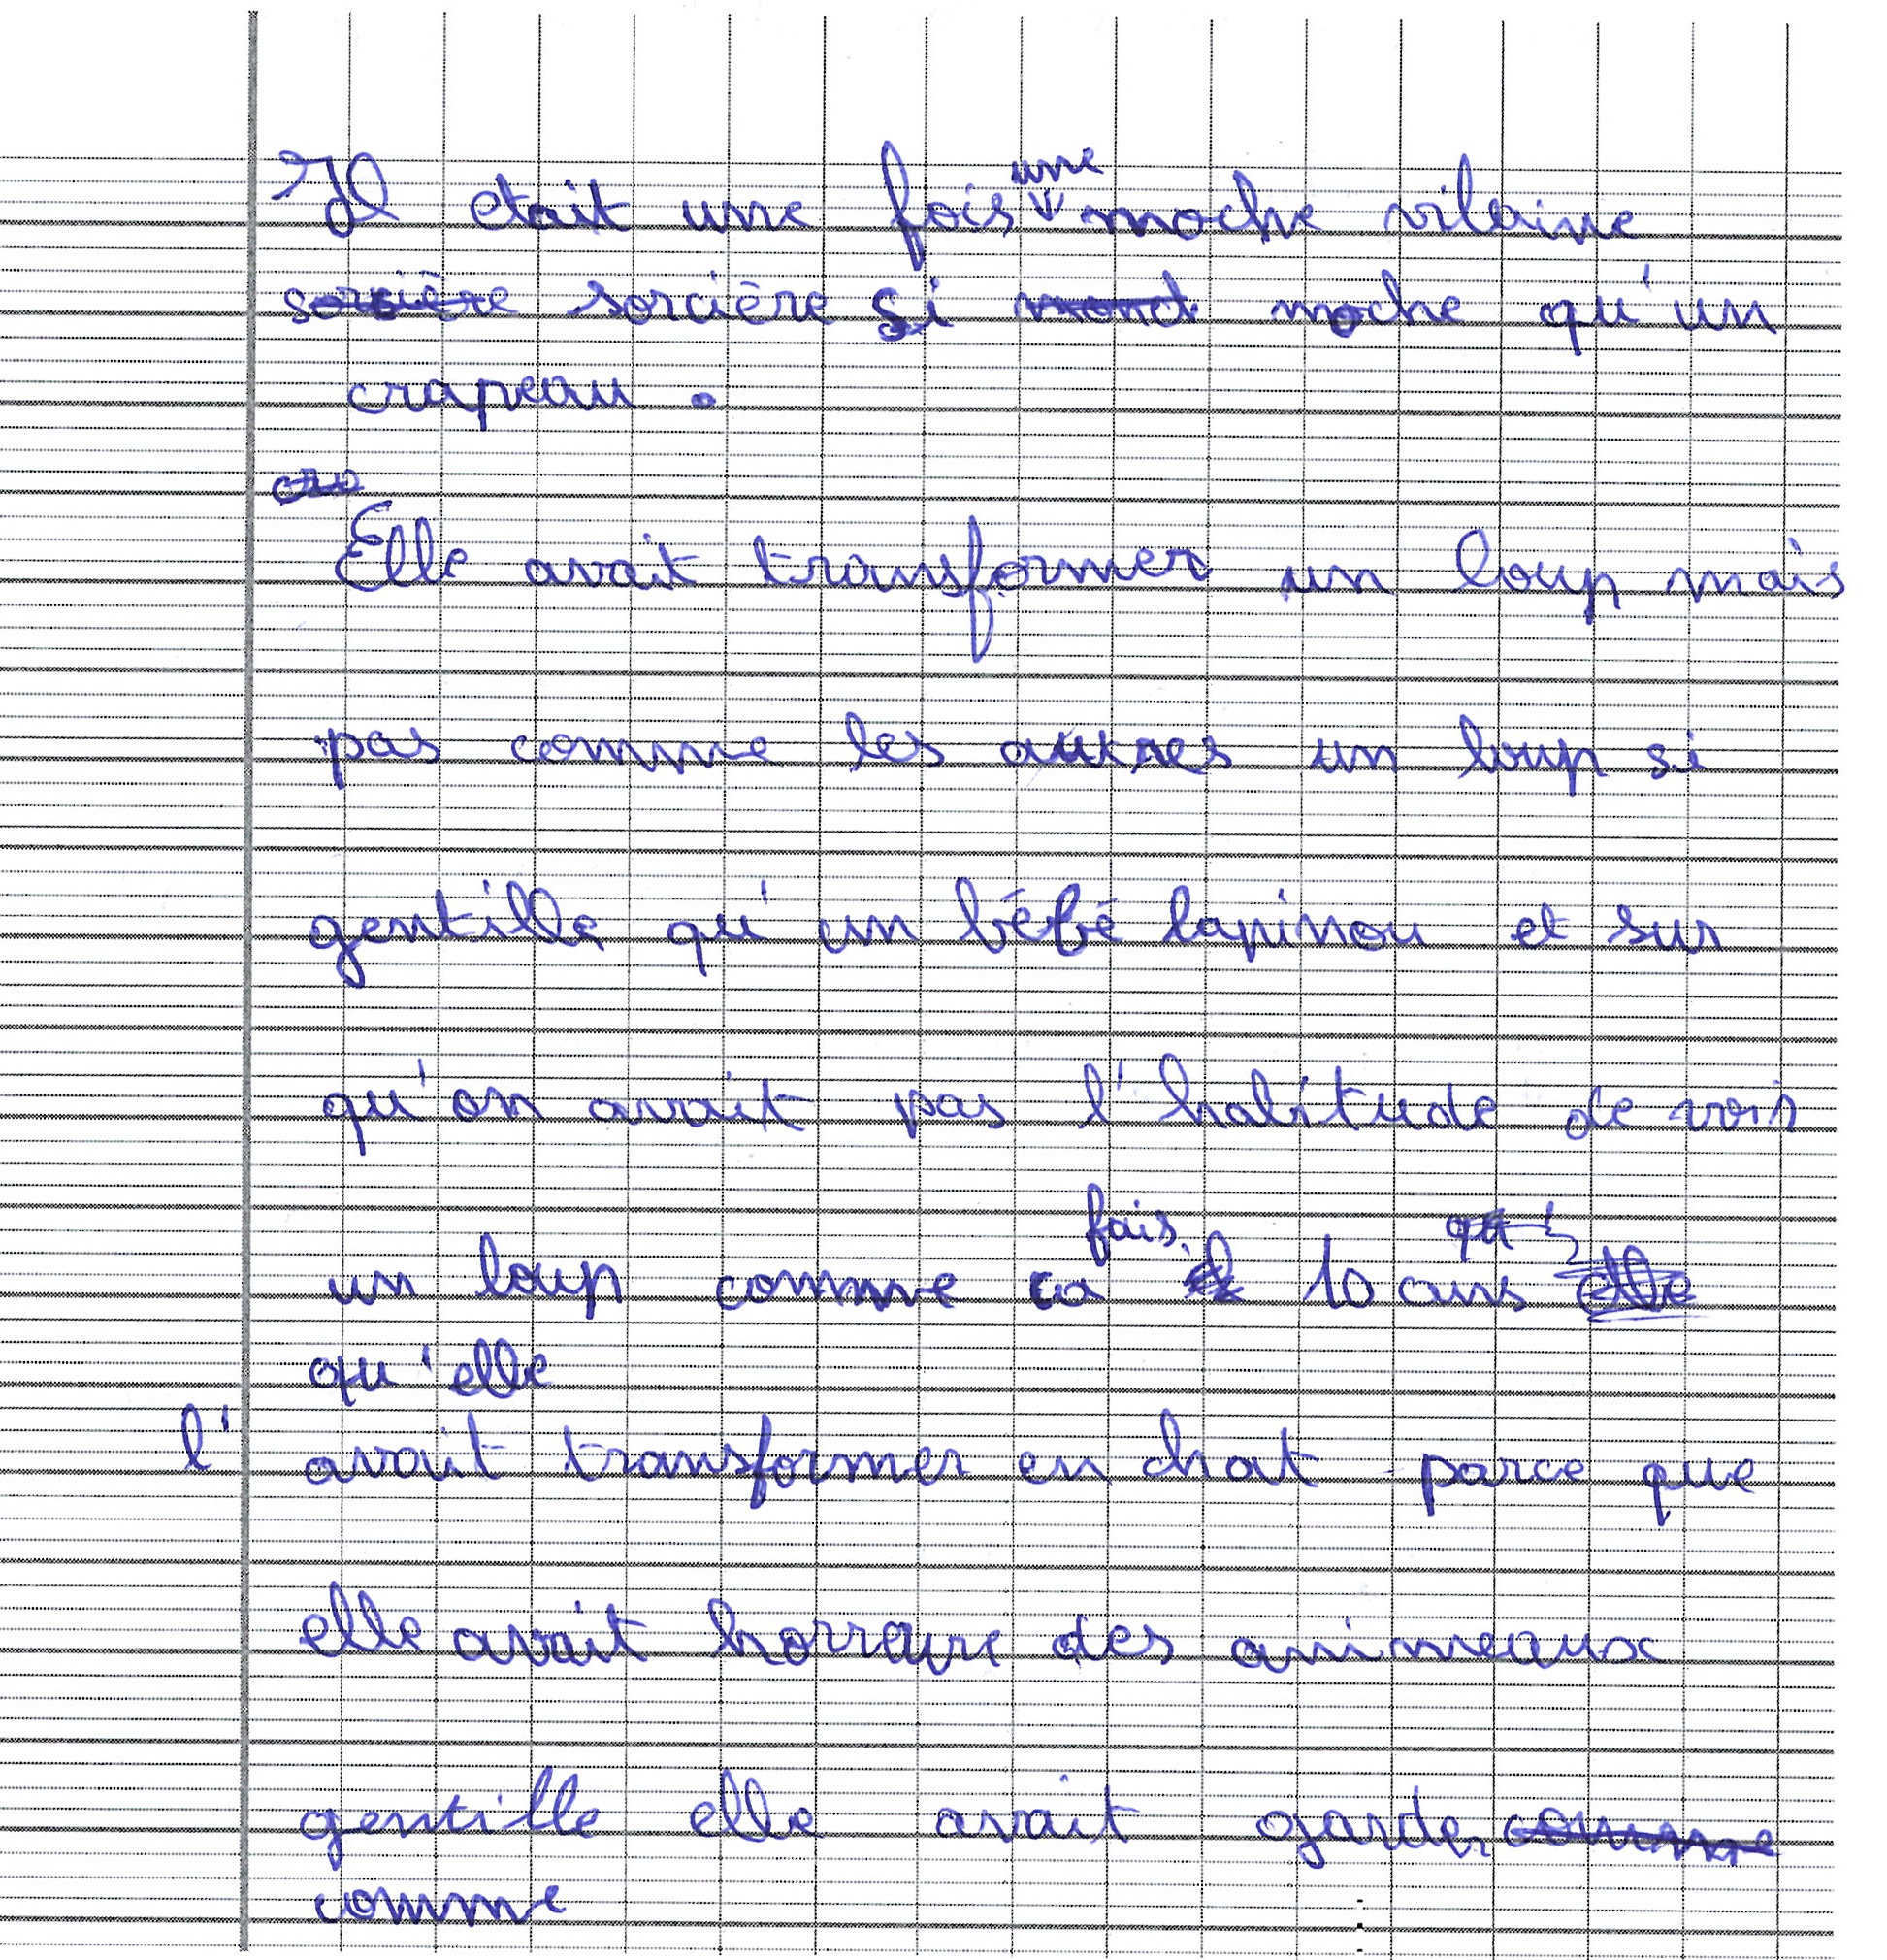 Il etait une fois une moche vilaine
sorcière sorcière si moche qu'un
crapeau.
Elle avait transformer un loup mais
pas comme les autres un loup si
gentille qu'un bébé lapinou et sur
qu'on avait pas l'habitude de voir
un loup comme ca fais 10 ans elle
qu'elle
l' avait transformer en chat parce que
elle avait horreure des animeaux
gentille elle avait garder comme
comme